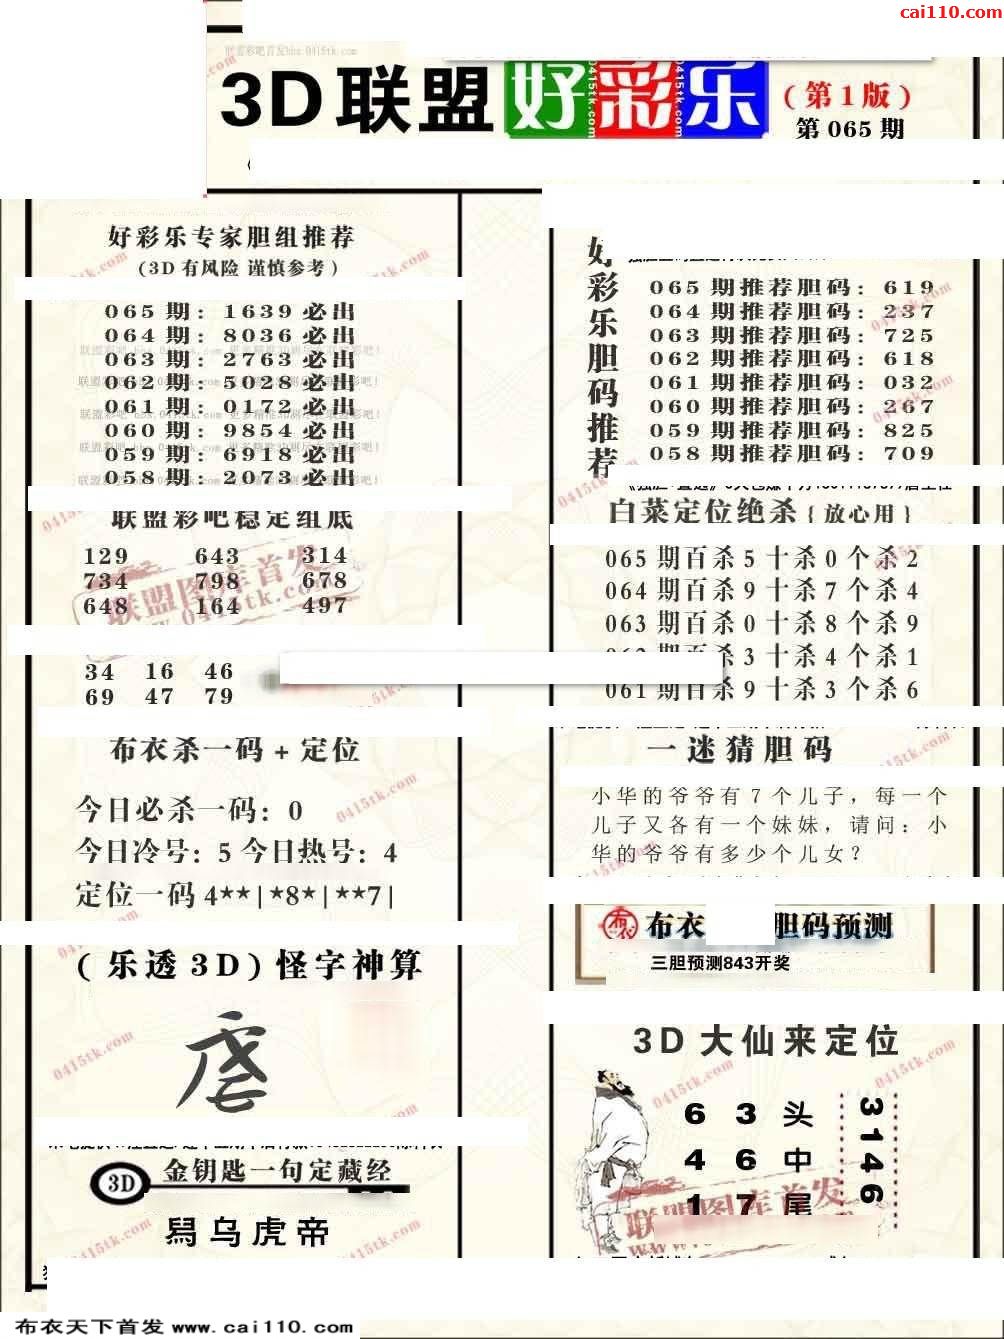 cai110.com
3D联盟好彩乐
(第1版)
第065期
好彩乐专家胆组推荐
(3D有风险 谨慎参考)
065期: 1639必出
064期: 8036必出
063期: 2763必出
062期: 5028必出
061期: 0172必出
060期: 9854必出
059期: 6918必出
058期: 2073必出
联盟彩吧稳定组底
129 643 314
734 798 678
648 164 497
34 16 46
69 47 79
布衣杀一码+定位
今日必杀一码: 0
今日冷号: 5 今日热号: 4
定位一码 4**|*8*|**7|
(乐透3D)怪字神算
3D
金钥匙一句定藏经
乌虎帝
好彩乐胆码推荐
065期推荐胆码: 619
064期推荐胆码: 237
063期推荐胆码: 725
062期推荐胆码: 618
061期推荐胆码: 032
060期推荐胆码: 267
059期推荐胆码: 825
058期推荐胆码: 709
白菜定位绝杀{放心用}
065期百杀5十杀0个杀2
064期百杀9十杀7个杀4
063期百杀0十杀8个杀9
杀3十杀4个杀1
061期百杀9十杀3个杀6
一迷猜胆码
小华的爷爷有7个儿子，每一个
儿子又各有一个妹妹，请问：小
华的爷爷有多少个儿女？
布衣 胆码预测
三胆预测843开奖
3D大仙来定位
6 3 头
4 6 中
1 7 尾
3146
联盟图库首发
0415tk.com
布衣天下首发 www.cai110.com